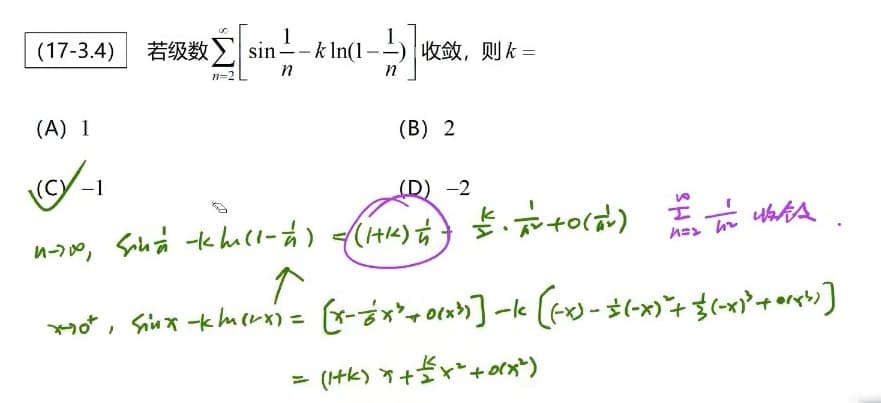 (17-3.4) 若级数∑_{n=2}^{∞}[sin 1/n − k ln(1 − 1/n)]收敛，则 k =
(A) 1 (B) 2
(C) −1 (D) −2
n→∞, sin 1/n − k ln(1 − 1/n) = (1+k) 1/n + k/2 · 1/n² + o(1/n²) ∑_{n=2}^{∞} 1/n² 收敛.
x→0⁺, sin x − k ln(1−x) = [x − 1/6 x³ + o(x³)] − k[(−x) − 1/2 (−x)² + 1/3 (−x)³ + o(x³)]
= (1+k) x + k/2 x² + o(x²)